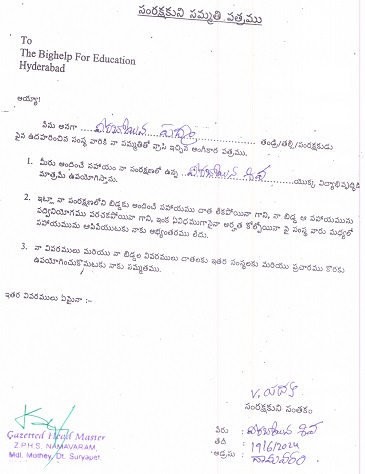 సంరక్షకుని సమ్మతి పత్రము
To
The Bighelp For Education
Hyderabad
అయ్యా!
నేను అనగా ........ ........ తండ్రి/తల్లి/సంరక్షకుడు
పైన ఉదహరించిన సంస్థ వారికి నా సమ్మతితో వ్రాసి ఇచ్చిన అంగీకార పత్రము.
1. మీరు అందించే సహాయం నా సంరక్షణలో ఉన్న ........ ........ యొక్క విద్యాభివృద్ధికి
మాత్రమే ఉపయోగిస్తాను.
2. ఇట్లా నా సంరక్షణలోని బిడ్డకు అందించే సహాయము దాత లేకపోయినా గాని, నా బిడ్డ ఆ సహాయమును
పద్వినియోగము పరచకపోయినా గాని, ఇంక ఏవిధముగానైనా అర్హత కోల్పోయినా పై సంస్థ వారు మధ్యలో
సహాయమును ఆపివేయుటకు నాకు అభ్యంతరము లేదు.
3. నా వివరములు మరియు నా బిడ్డల వివరములు దాతలకు ఇతర సంస్థలకు మరియు ప్రచారము కొరకు
ఉపయోగించుకొనుటకు నాకు సమ్మతము.
ఇతర వివరములు ఏమైనా :-
సంరక్షకుని సంతకం
పేరు :
తేది : 19/6/2024
అడ్రసు :
Gazetted Head Master
Z.P.H.S. NAMAVARAM,
Mdl. Mothey, Dt. Suryapet.